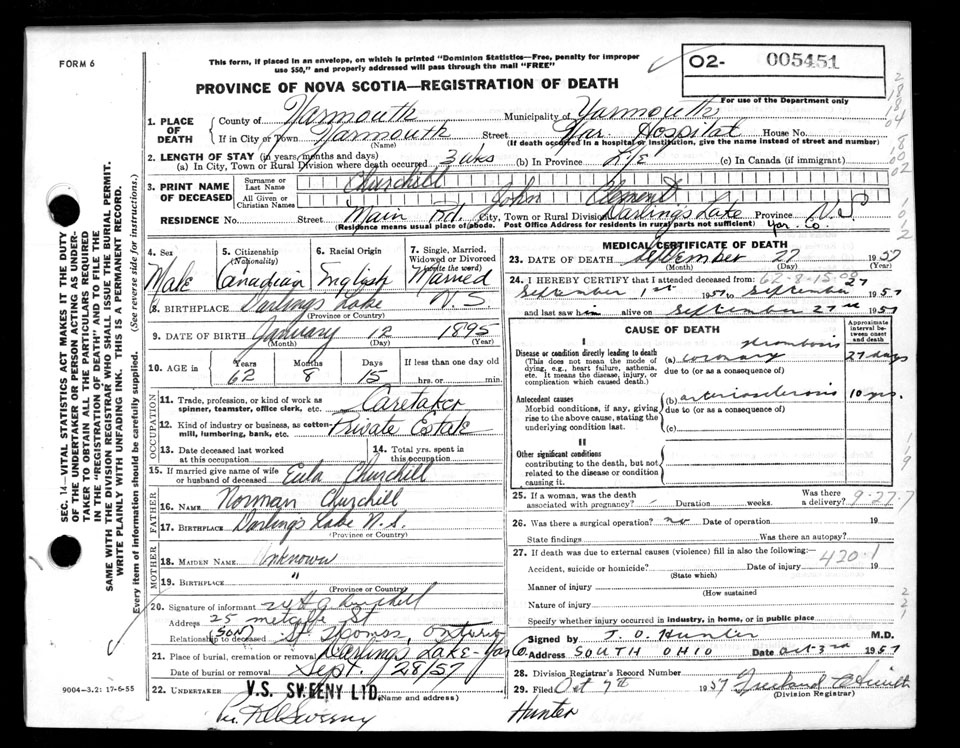 FORM 6
This form, if placed in an envelope, on which is printed "Dominion Statistics—Free, penalty for improper
use $50," and properly addressed will pass through the mail "FREE"
02- 005451
For use of the Department only
PROVINCE OF NOVA SCOTIA—REGISTRATION OF DEATH
1. PLACE OF DEATH
County of Yarmouth Municipality of Yarmouth
If in City or Town Yarmouth Street Yar. Hospital House No.
(Name) (If death occurred in a hospital or institution, give the name instead of street and number)
2. LENGTH OF STAY (in years, months and days)
(a) In City, Town or Rural Division where death occurred 3 wks (b) In Province Life (c) In Canada (if immigrant)
3. PRINT NAME OF DECEASED
Surname or Last Name Churchill
All Given or Christian Names John Clement
RESIDENCE No. Street Main Rd. City, Town or Rural Division Darlings Lake Province N.S.
(Residence means usual place of abode. Post Office Address for residents in rural parts not sufficient) Yar. Co.
4. Sex 5. Citizenship (Nationality) 6. Racial Origin 7. Single, Married, Widowed or Divorced (write the word)
Male Canadian English Married
8. BIRTHPLACE Darlings Lake N.S.
(Province or Country)
9. DATE OF BIRTH January 12 1895
(Month) (Day) (Year)
10. AGE in Years Months Days If less than one day old
62 8 15 hrs. or min.
OCCUPATION
11. Trade, profession, or kind of work as spinner, teamster, office clerk, etc. Caretaker
12. Kind of industry or business, as cotton-mill, lumbering, bank, etc. Private Estate
13. Date deceased last worked at this occupation 14. Total yrs. spent in this occupation
15. If married give name of wife or husband of deceased Eula Churchill
FATHER
16. NAME Norman Churchill
17. BIRTHPLACE Darlings Lake N.S.
(Province or Country)
MOTHER
18. MAIDEN NAME Unknown
19. BIRTHPLACE "
(Province or Country)
20. Signature of informant Churchill
Address 25 Metcalfe St
Relationship to deceased (SON) St Thomas, Ontario
21. Place of burial, cremation or removal Darlings Lake - Yar Co.
Date of burial or removal Sept. 28/57
22. UNDERTAKER V.S. SWEENY LTD. (Name and address)
Sweeny
9004—3.2: 17-6-55
MEDICAL CERTIFICATE OF DEATH
23. DATE OF DEATH September 27 1957
(Month) (Day) (Year)
24. I HEREBY CERTIFY that I attended deceased from: 62-8-15-09
September 1st 1957 to September 27 1957
and last saw him alive on September 27 1957
CAUSE OF DEATH Approximate interval between onset and death
I
Disease or condition directly leading to death
(This does not mean the mode of dying, e.g., heart failure, asthenia, etc. It means the disease, injury, or complication which caused death.)
(a) coronary thrombosis 27 days
due to (or as a consequence of)
Antecedent causes
Morbid conditions, if any, giving rise to the above cause, stating the underlying condition last.
(b) arteriosclerosis 10 yrs.
due to (or as a consequence of)
(c)
II
Other significant conditions
contributing to the death, but not related to the disease or condition causing it.
25. If a woman, was the death associated with pregnancy? Duration weeks. Was there a delivery? 9-27-7
26. Was there a surgical operation? no Date of operation 19
State findings Was there an autopsy?
27. If death was due to external causes (violence) fill in also the following:— 420.1
Accident, suicide or homicide? Date of injury 19
(State which)
Manner of injury
(How sustained
Nature of injury
Specify whether injury occurred in industry, in home, or in public place
Signed by J. O. Hunter M.D.
Address SOUTH OHIO Date Oct 3rd 1957
28. Division Registrar's Record Number
29. Filed Oct 7th 1957
(Division Registrar)
Hunter
SEC. 14—VITAL STATISTICS ACT MAKES IT THE DUTY
OF THE UNDERTAKER OR PERSON ACTING AS UNDER-
TAKER TO OBTAIN ALL THE PARTICULARS REQUIRED
IN THE "REGISTRATION OF DEATH" AND TO FILE THE
SAME WITH THE DIVISION REGISTRAR WHO SHALL ISSUE THE BURIAL PERMIT.
WRITE PLAINLY WITH UNFADING INK. THIS IS A PERMANENT RECORD.
Every item of information should be carefully supplied. (See reverse side for instructions.)